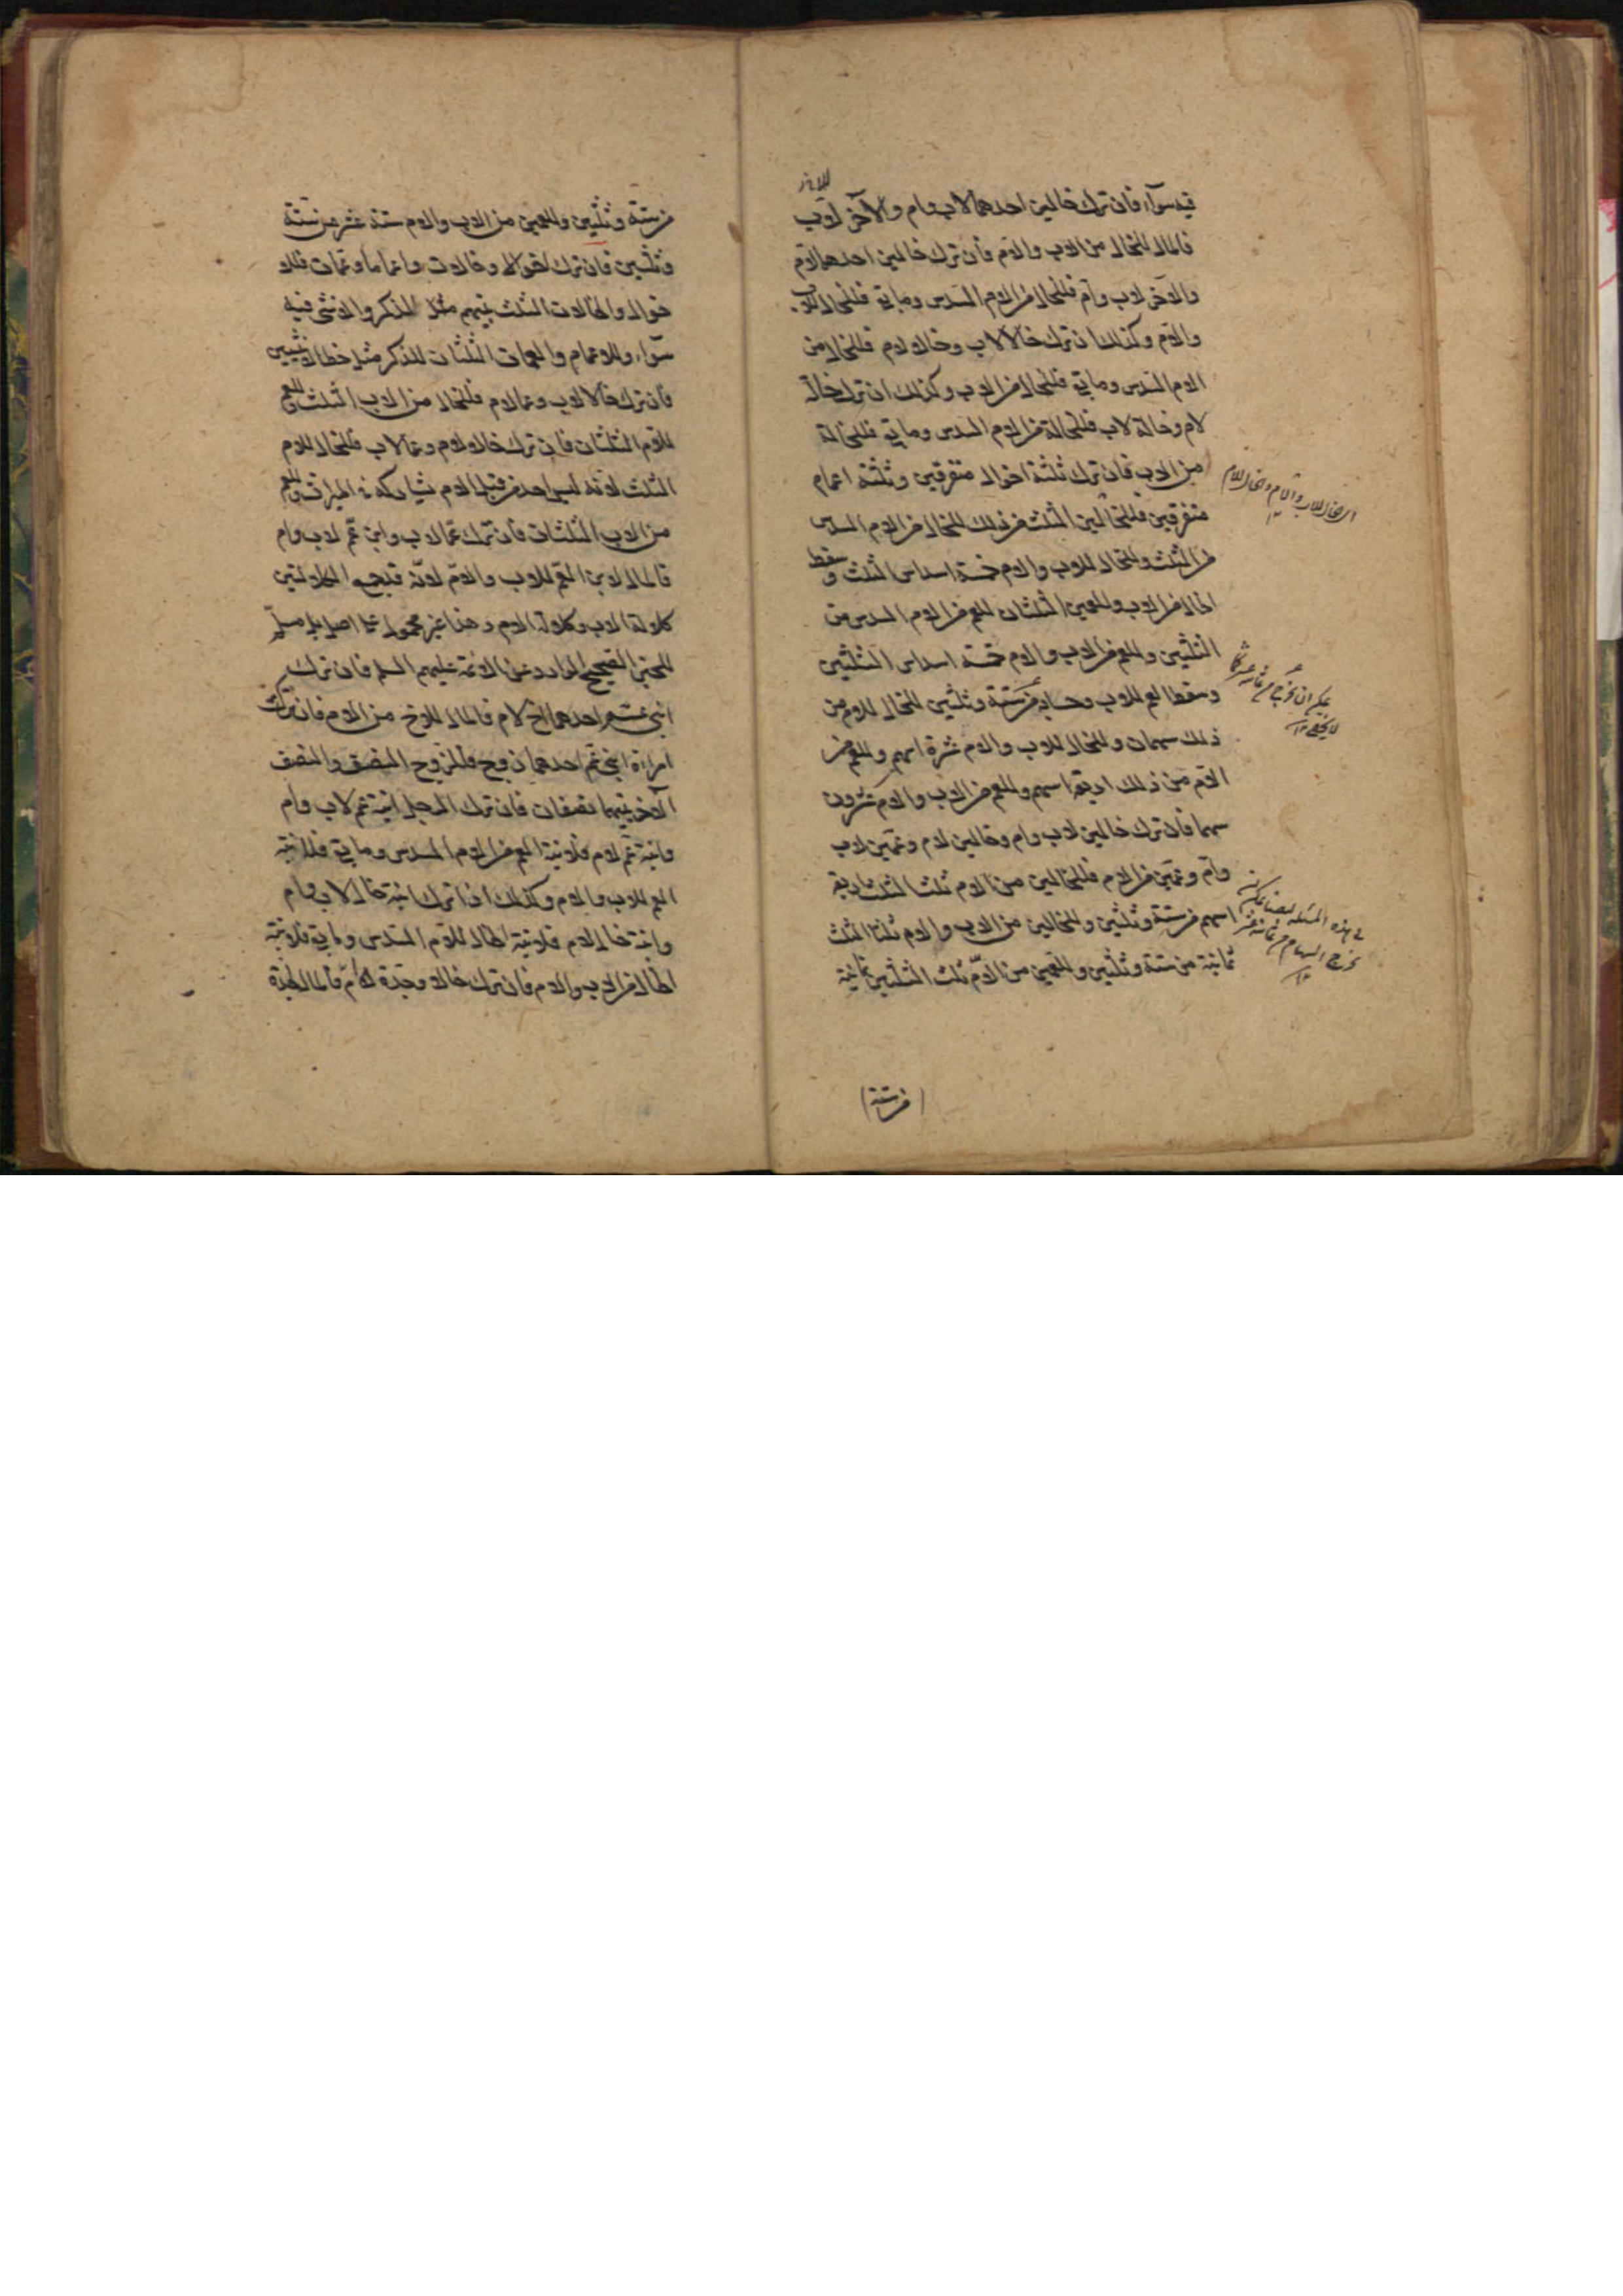 فيه سواء فان ترك خالين احدهما لاب وام والآخر لاب
فالمال للخال من الاب والام فان ترك خالين احدهما لام
والآخر لاب وام فللخال من الام السدس وما بقي فللخال للاب
والام وكذلك ان ترك خالا لاب وخالا لام فللخال من
الام السدس وما بقي فللخال من الاب وكذلك ان ترك خالة
لام وخالة لاب فللخالة من الام السدس وما بقي فللخالة
من الاب فان ترك ثلثة اخوال متفرقين وثلثة اعمام
متفرقين فللخالين الثلث من ذلك للخال من الام السدس
من الثلث وللخال للاب والام خمسة اسداس الثلث وسقط
الخال من الاب وللعمين الثلثان للعم من الام السدس من
الثلثين وللعم من الاب والام خمسة اسداس الثلثين
وسقط العم للاب وحسابه من ستة وثلثين للخال للام من
ذلك سهمان وللخال للاب والام عشرة اسهم وللعم من
الام من ذلك اربعة اسهم وللعم من الاب والام عشرون
سهما فان ترك خالين لاب وام وخالين لام وعمين لاب
وام وعمين من الام فللخالين من الام ثلث الثلث اربعة
اسهم من ستة وثلثين وللخالين من الاب والام ثلثا الثلث
ثمانية من ستة وثلثين وللعمين من الام ثلث الثلثين ثمانية
(من ستة)
اى خال للاب والام وخال للام
يمكن ان يخرج من ثمانية عشر
لا يخفى
فى هذه المسئلة ايضا يمكن
يخرج السهام من ثمانية عشر
من ستة وثلثين وللعمين من الاب والام ستة عشر من ستة
وثلثين فان ترك اخوالا وخالات واعماما وعمات فللا
خوال والخالات الثلث بينهم مثل الذكر والانثى فيه
سواء وللاعمام والعمات الثلثان للذكر مثل حظ الانثيين
فان ترك خالا لاب وعما لام فللخال من الاب الثلث وللعم
للام الثلثان فان ترك خالا لام وعما لاب فللخال للام
الثلث لانه ليس احد من قبل الام يشاركه في الميراث وللعم
من الاب الثلثان فان ترك عما لاب وابن عم لاب وام
فالمال لابن العم للاب والام لانه قد جمع الكلالتين
كلالة الاب وكلالة الام وهذا غير محمول على اصل بل مسلم
للخبر الصحيح الوارد عن الائمة عليهم السلم فان ترك
ابنى عم احدهما اخ لام فالمال للاخ من الام فان تركت
امراة ابنى عم احدهما زوج فللزوج النصف والنصف
الآخر بينهما نصفان فان ترك الرجل ابنة عم لاب وام
وابنة عم لام فلابنة العم من الام السدس وما بقي فلابنة
العم للاب والام وكذلك اذا ترك ابنة خال لاب وام
وابنة خال لام فلابنة الخال للام السدس وما بقي فلابنة
الخال من الاب والام فان ترك خالا وجدة لام فالمال للجدة